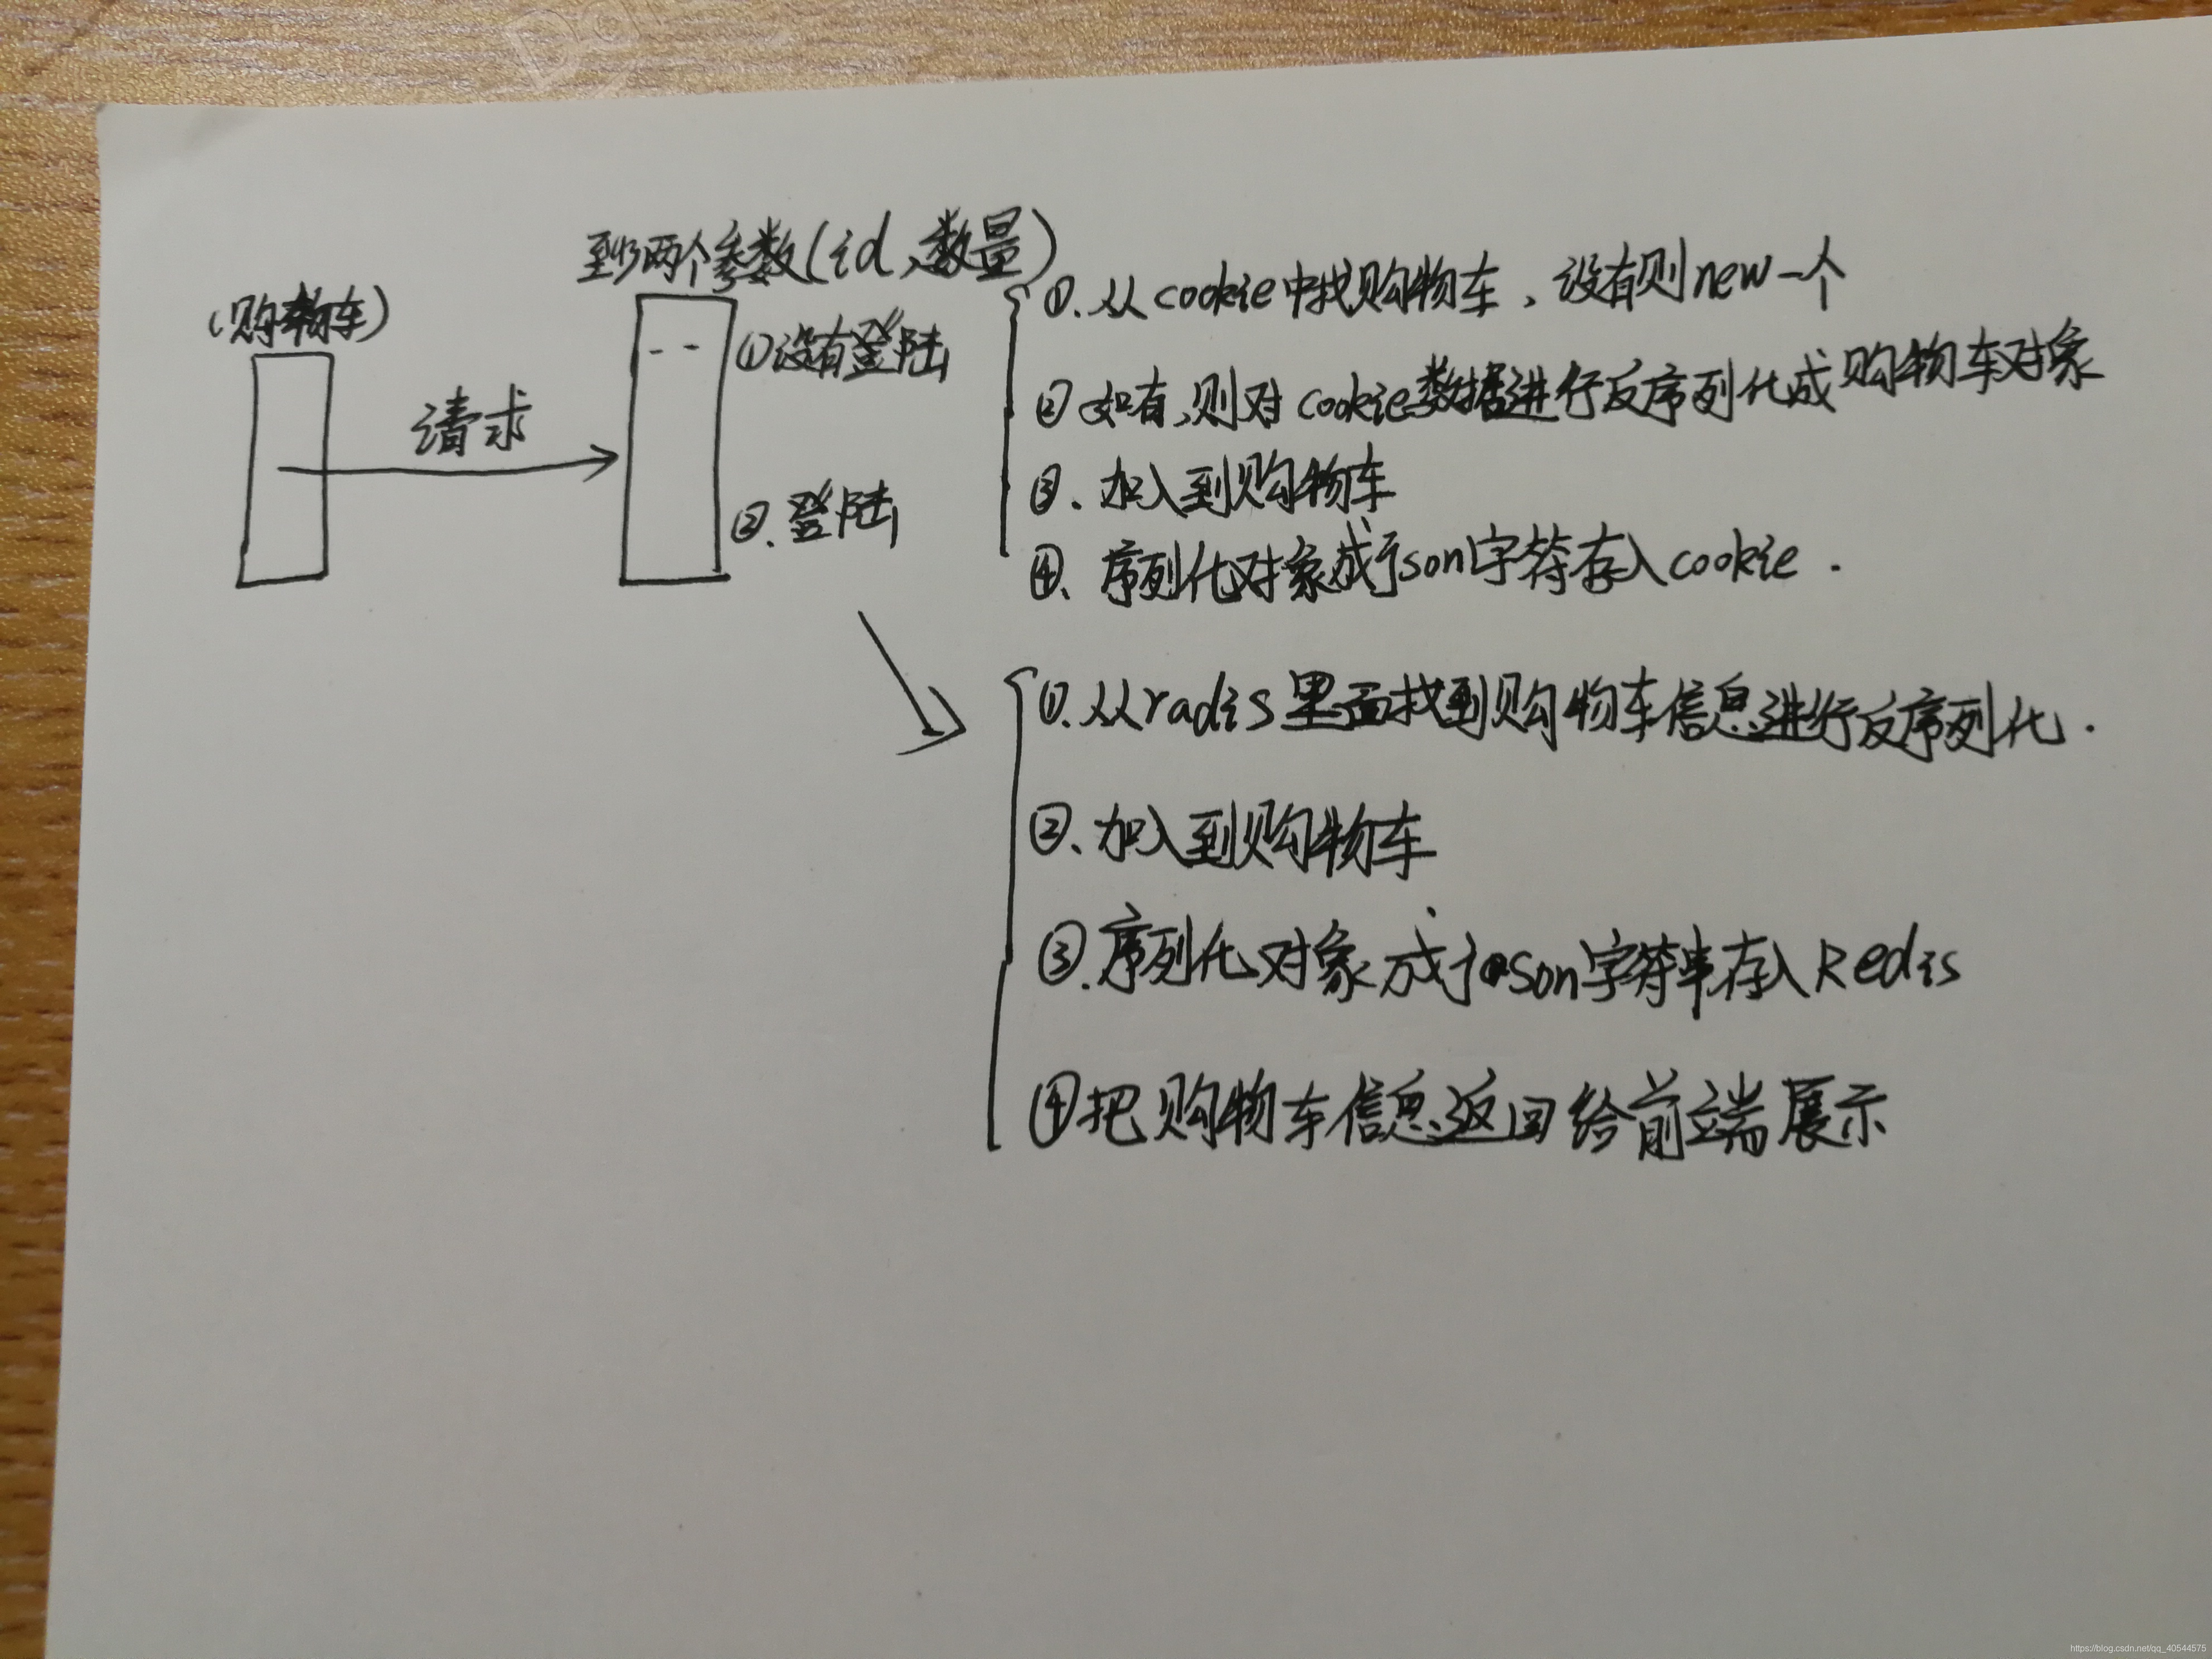 至少两个参数(id、数量)
(购物车)
请求
①没有登陆
②.登陆
①.从cookie中找购物车，没有则new一个
②如有,则对cookie数据进行反序列化成购物车对象
③.加入到购物车
④.序列化对象成json字符存入cookie.
①.从radis里面找到购物车信息进行反序列化.
②.加入到购物车
③.序列化对象成json字符串存入Redis
④把购物车信息返回给前端展示
https://blog.csdn.net/qq_40544575